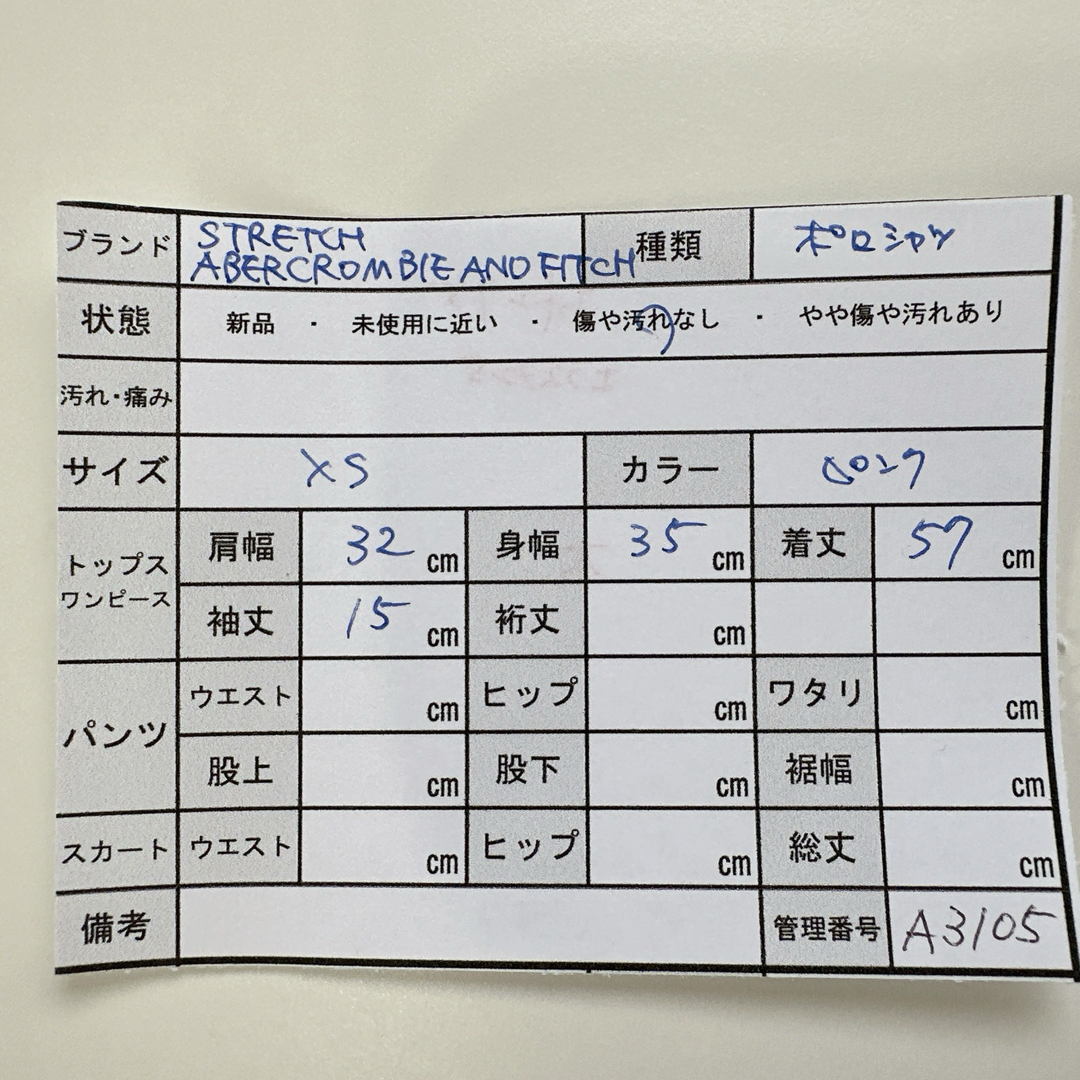 ブランド STRETCH ABERCROMBIE AND FITCH 種類 ポロシャツ
状態 新品 ・ 未使用に近い ・ 傷や汚れなし ・ やや傷や汚れあり
汚れ・痛み
サイズ XS カラー ピンク
トップス ワンピース 肩幅 32 cm 身幅 35 cm 着丈 57 cm
袖丈 15 cm 裄丈 cm
パンツ ウエスト cm ヒップ cm ワタリ cm
股上 cm 股下 cm 裾幅 cm
スカート ウエスト cm ヒップ cm 総丈 cm
備考 管理番号 A3105